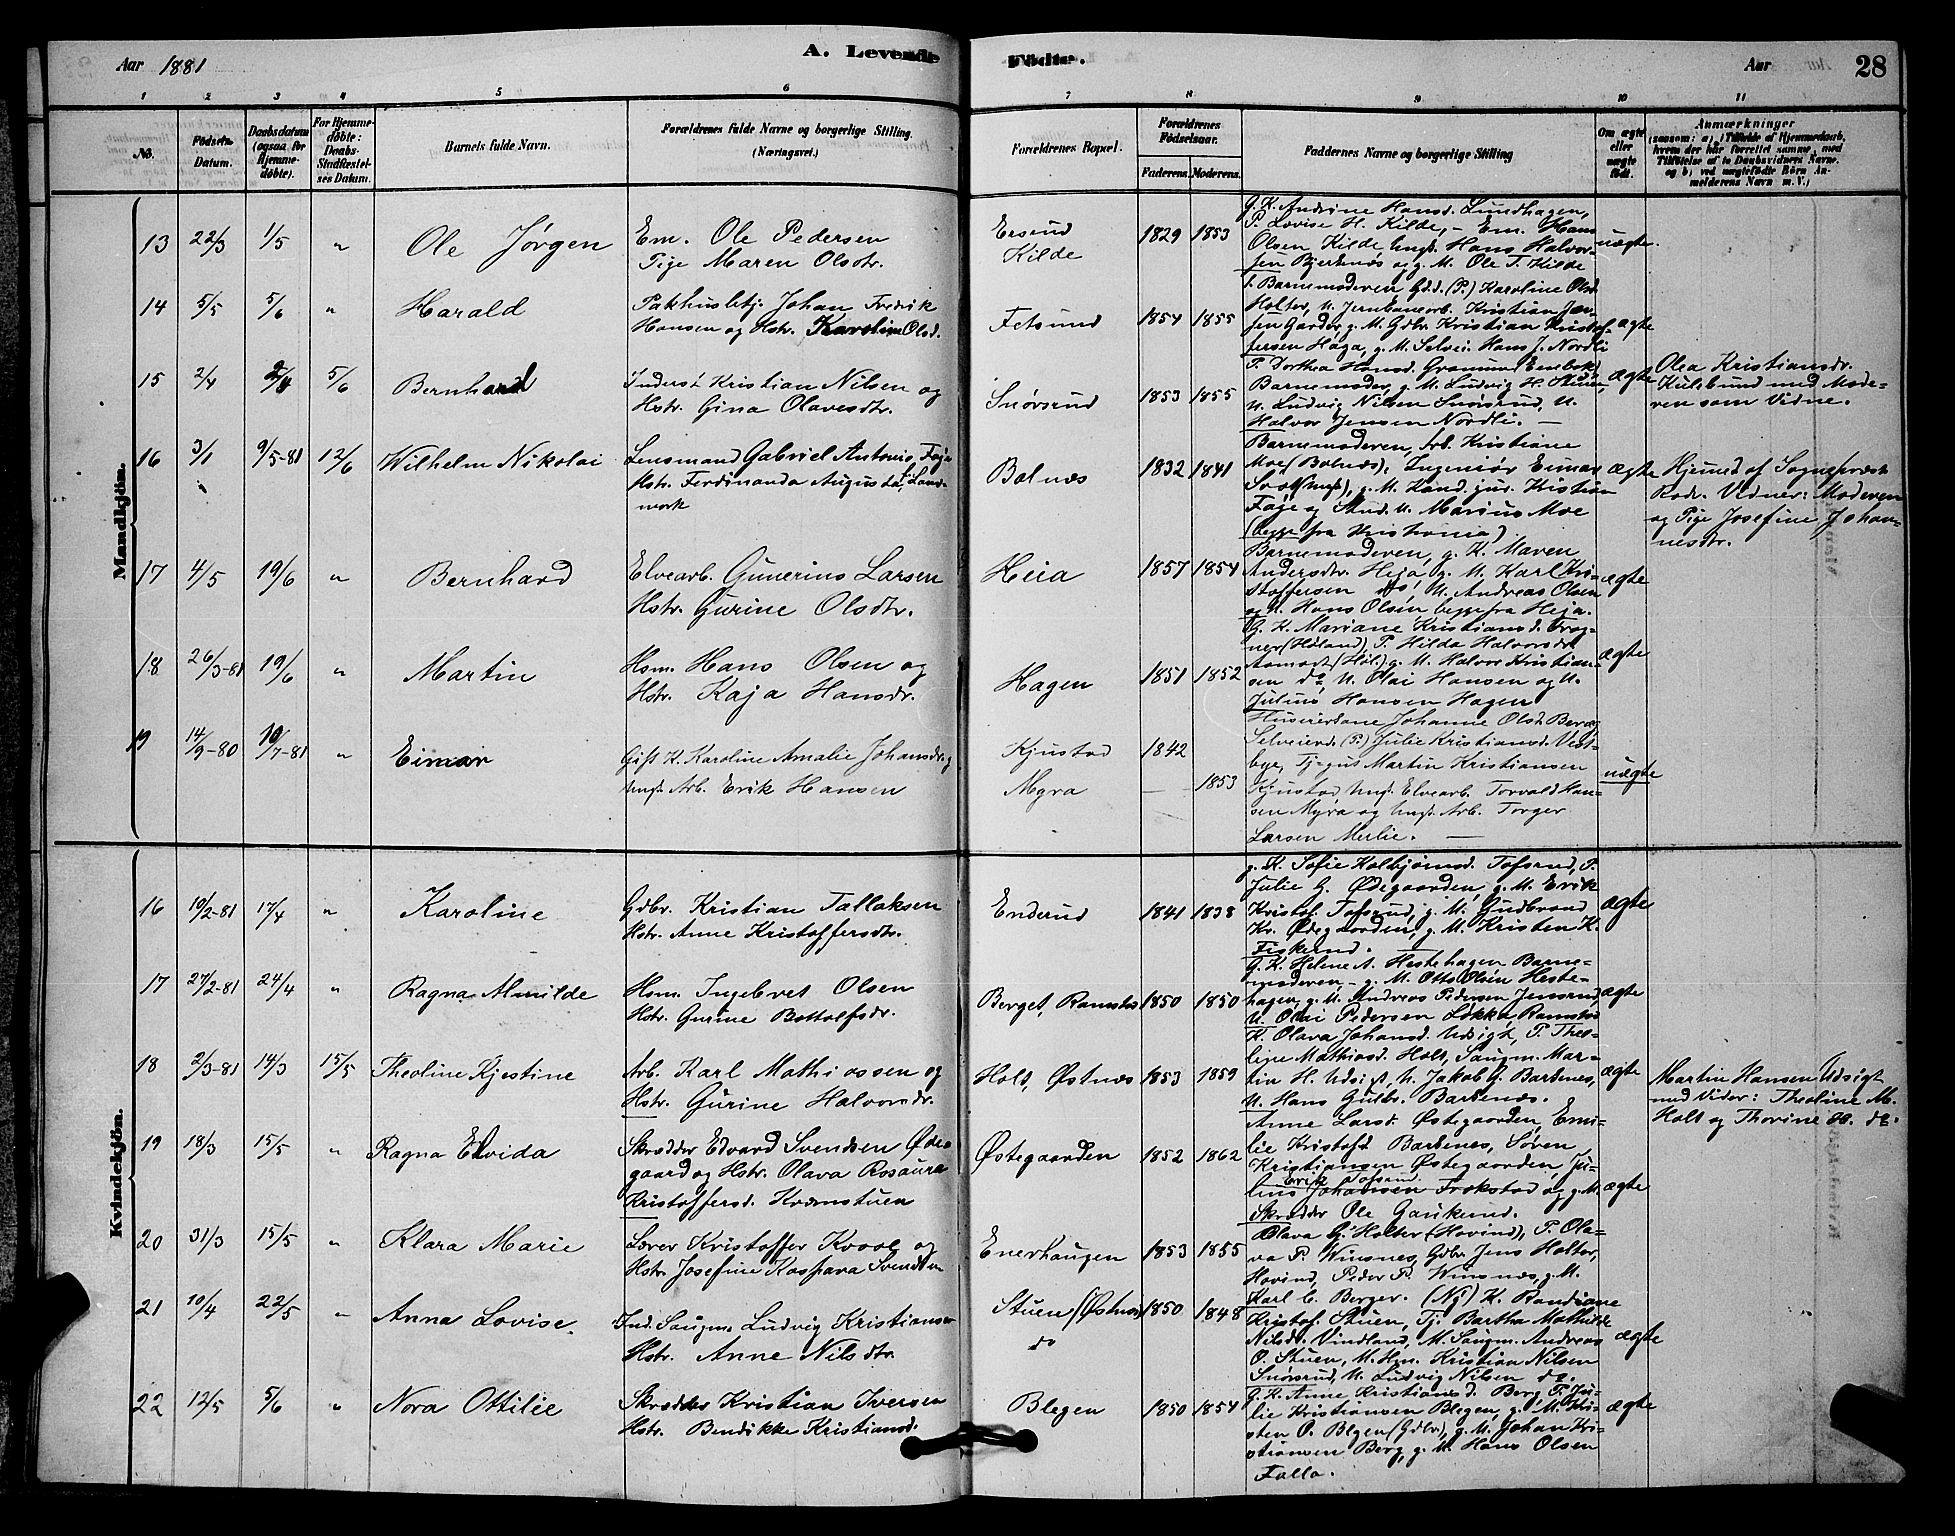 Aar 1881
A. Levende
Födte.
Aar
28
1 2 3 4 5 6 7 8 9 10 11
No.
Födsels-Datum.
Daabsdatum (ogsaa for Hjemmedöbte).
For Hjemmedöbte: Daabs-Stadfæstelses Datum.
Barnets fulde Navn.
Forældrenes fulde Navne og borgerlige Stilling. (Næringsvei.)
Forældrenes Bopæl.
Forældrenes Födselsaar.
Faderens. Moderens.
Faddernes Navne og borgerlige Stilling
Om ægte eller uægte födt.
Anmærkninger
(saasom: a) i Tilfælde af Hjemmedaab, hvem der har forrettet samme, med Tilföielse af to Daabsvidners Navne, og b) ved uægtefödte Börn Anmelderens Navn m. V.)
Mandkjön.
13 22/3 1/5 " Ole Jørgen
Em. Ole Pedersen
Pige Maren Olsdtr.
Ersrud
Kilde
1829 1853
G. K. Andrine Hansd. Lundhagen,
P. Lovise H. Kilde, - Em. Hans
Olsen Kilde Ungk. Hans Halvor-
sen Bjerknæs og g. M. Ole T. Kilde
uægte.
14 5/5 5/6 " Harald
Pakhusbetj. Johan Fredrik
Hansen og Hstr. Karoline Olsd.
Fetsund
1854 1855
Barnemoderen Gdd. (P.) Karoline Olsd.
Holter, U. Jernbanearb. Kristian Jen-
sen Garder, g. M. Gdbr. Kristian Kristof-
fersen Haga, g. M. Selvei. Hans J. Nordli
ægte
15 2/4 2/4 5/6 Bernhard
Inderst Kristian Nilsen og
Hstr. Gina Olavesdtr.
Snørsrud
1853 1855
P. Dorthea Hansd. Gramund Enebak,
Barnemoder, g. M. Ludvig H. Stuen,
U. Ludvig Nilsen Snørsrud, U.
Halvor Jensen Nordli. —
ægte
Olea Kristiansdr.
Kulsrund med Mode-
ren som Vidne.
16 3/1 9/5-81 12/6 Wilhelm Nikolai
Lensmand Gabriel Antonio Faye
Hstr. Ferdinanda Augusta Land-
mark
Balnæs
1832 1841
Barnemoderen, frk. Kristiane
Moe (Balnæs), Ingeniør Einar
(Ungk), g. M. Kand. jur. Kristian
Faye og Stud. U. Marius Moe
(begge fra Kristiania)
ægte
Hjemd. af Sogneprest
Rode. Vidner: Moderen
og Pige Josefine Johan-
nesdtr.
17 4/5 19/6 " Bernhard
Elvearb. Gunerius Larsen
Hstr. Gurine Olsdtr.
Heia
1857 1854
Barnemoderen, g. K. Maren
Andersdtr. Heja, g. M. Karl Kri-
stoffersen do, U. Andreas Olsen
og U. Hans Olsen begge fra Heja.
ægte
18 26/3-81 19/6 " Martin
Hsm. Hans Olsen og
Hstr. Kaja Hansdr.
Hagen
1851 1852
G. K. Mariane Kristiansd. Trog-
ner (Høland), P. Hilda Halvorsdt.
Aamodt (Høl.) g. M. Halvor Kristian-
sen do, U. Olai Hansen og U.
Julius Hansen Hagen
ægte
19 14/9-80 10/7-81 " Einar
Gift K. Karoline Amalie Johansdr. og
Ungk. Arb. Erik Hansen
Kjustad
Myra
1842
— 1853
Huseierkone Johanne Olsd. Berg,
Selveierd. (P.) Julie Kristiansd. Vest-
bye, Tjegut Martin Kristiansen
Kjustad Ungk. Elvearb. Torvald Han-
sen Myra og Ungk. Arb. Torger
Larsen Merlie. —
uægte
Kvindekjön.
16 19/2-81 17/4 " Karoline
Gdbr. Kristian Tallaksen
Hstr. Anne Kristoffersdtr.
Enderud
1841 1838
g. K. Sofie Kolbjørnsd. Tofsrud, P.
Julie G. Ødegaarden, g. M. Erik
Kristof. Tofsrud, g. M. Gudbrand
Kr. Ødegaarden, g. M. Kristen K.
Fiskerud.
ægte
17 27/2-81 24/4 " Ragna Almilde
Hsm. Ingebret Olsen
Hstr. Gurine Bottolfsdr.
Berget, Ramstad
1850 1850
G. K. Helene A. Hestehagen Barne-
moderen, - g. M. Otto Olsen Heste-
hagen, g. M. Andreas Pedersen Jensrud,
U. Olai Pedersen Løkka Ramstad
ægte
18 2/3-81 14/3 15/5 Theoline Kjestine
Arb. Karl Mathiassen og
Hstr. Gurine Halvorsdr.
Holt, Østnæs
1853 1859
K. Olava Johansd. Udsigt, P. Theo-
line Mathiasd. Holt, Saugm. Mar-
tin H. Udsigt, U. Jakob G. Bardenæs,
U. Hans Gulbr. Bardenæs.
ægte
Martin Hansen Udsigt
med Vidner: Theoline M.
Holt og Thorine do. do.
19 18/3 15/5 " Ragna Elvida
Skrædder Edvard Svendsen Øde-
gaard og Hstr. Olava Rosaura
Kristoffersd. Kværnstuen
Østegaarden
1852 1862
Anne Larsd. Østegaarden, Emi-
lie Kristofd. Bardenes, Søren
Kristiansen Østegaarden, Ju-
Erik Tofsrud
lius Johansen Frokstad og g. M.
Skrædder Ole Gaukerud.
ægte
20 31/3 15/5 " Klara Marie
Lærer Kristoffer Kvoel og
Hstr. Josefine Kaspara Svendsen
Enerhaugen
1853 1855
Olava G. Holter (Hovind), P. Ola-
va P. Winsnes, Gdbr. Jens Holter,
Hovind, Peder P. Winsnæs, g. M.
Karl C. Berger.
21 10/4 22/5 " Anna Lovise.
Ind. Saugm. Ludvig Kristiansen
Hstr. Anne Nilsdtr.
Stuen (Østnæs)
do
1850 1848
(Ny) K. Randiane
Kristof. Stuen, Tj. Bartha Mathilde
Nilsdr. Vindland, M. Saugm. Andreas
O. Stuen, M. Hm. Kristian Nilsen
Snørsrud, U. Ludvig Nilsen do.
ægte
22 12/5 5/6 " Nora Ottilie
Skrædder Kristian Iversen
Hstr. Bendikke Kristiansd.
Blegen
1850 1854
G. K. Anne Kristiansd. Berg, P. Ju-
lie Kristiansen Blegen, g. M. Kri-
sten O. Blegen (Gdbr.), g. M. Johan Kri-
stiansen Berg, g. M. Hans Olsen
Falla.
ægte